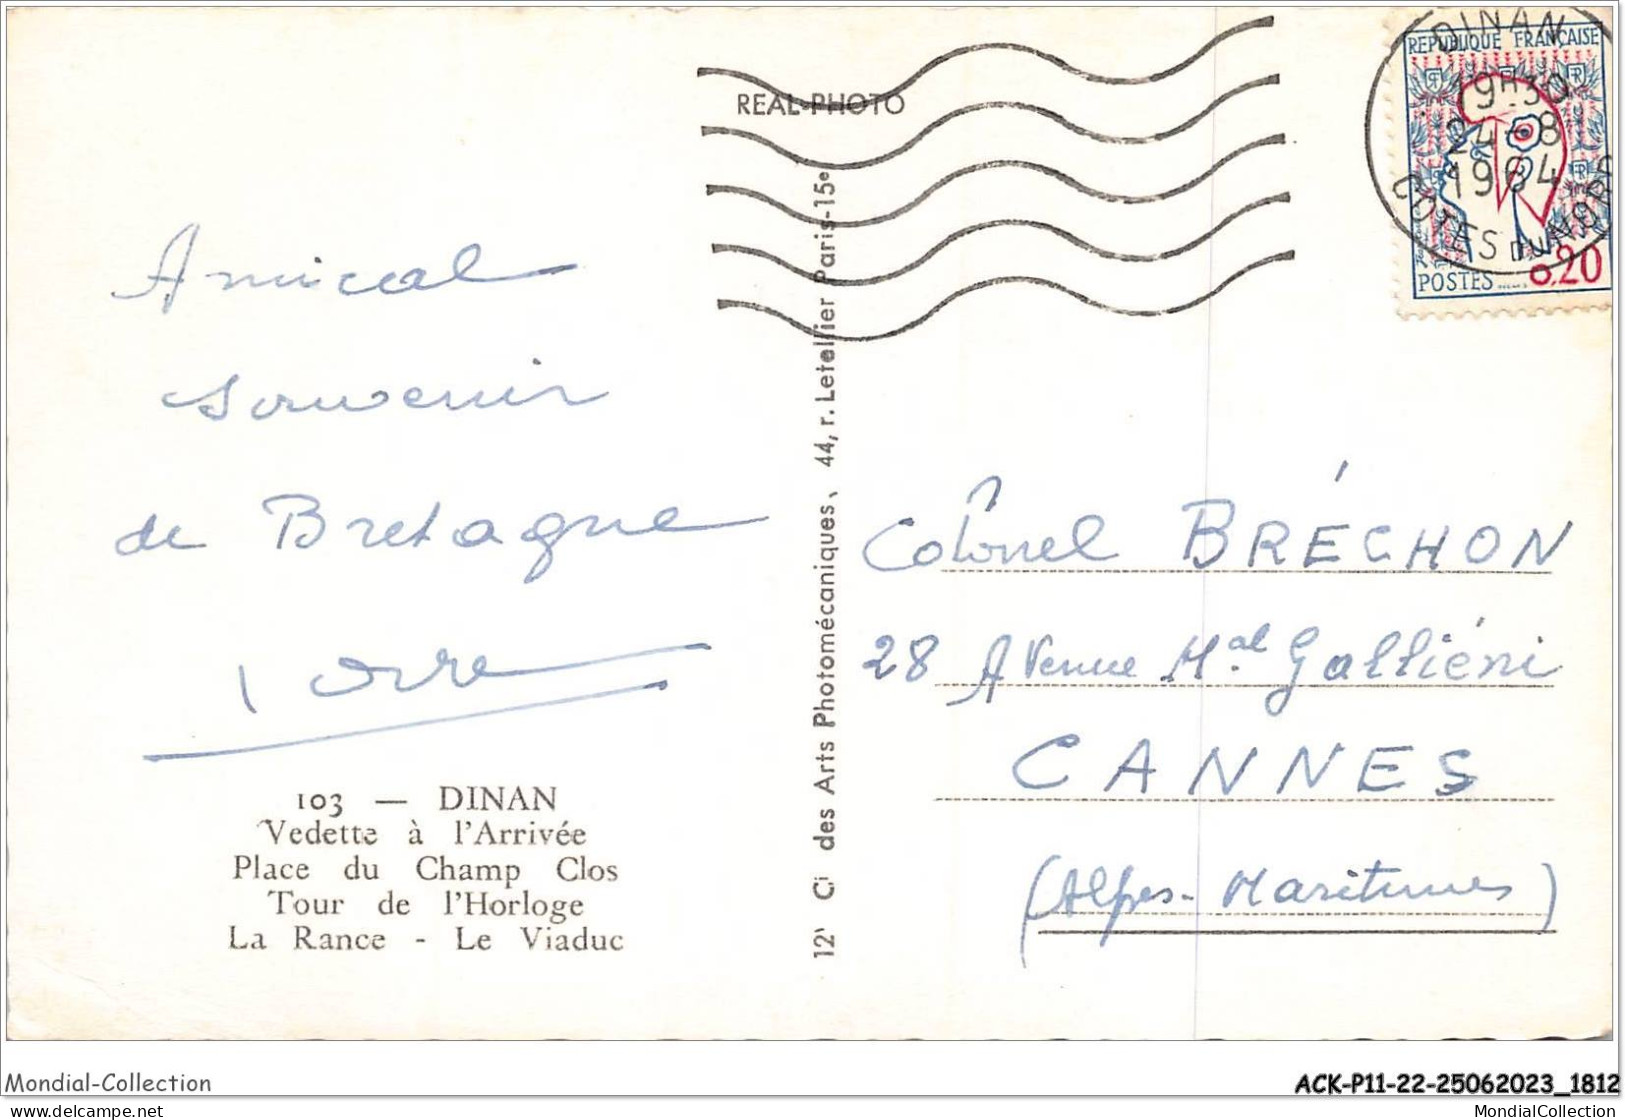 REAL-PHOTO
DINAN
19H30
24-8
1964
COTES DU NORD
REPUBLIQUE FRANÇAISE
POSTES 0,20
Amical
souvenir
de Bretagne
12' Ci des Arts Photomécaniques, 44, r. Letellier Paris-15e
Colonel BRÉCHON
28 Avenue Mal Galliéni
CANNES
(Alpes-Maritimes)
103 — DINAN
Vedette à l'Arrivée
Place du Champ Clos
Tour de l'Horloge
La Rance - Le Viaduc
Mondial-Collection
ACK-P11-22-25062023_1812
delcampe.net
MondialCollection